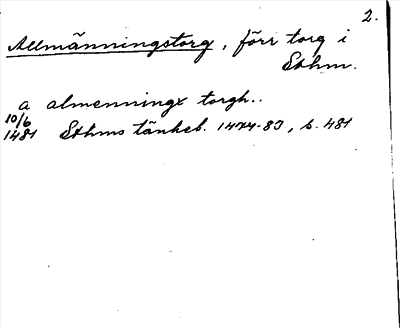 2.
Allmänningstorg, förr torg i
Sthm.
a almenningx torgh..
10/6
1481 Sthms tänkeb. 1474-83, s. 481